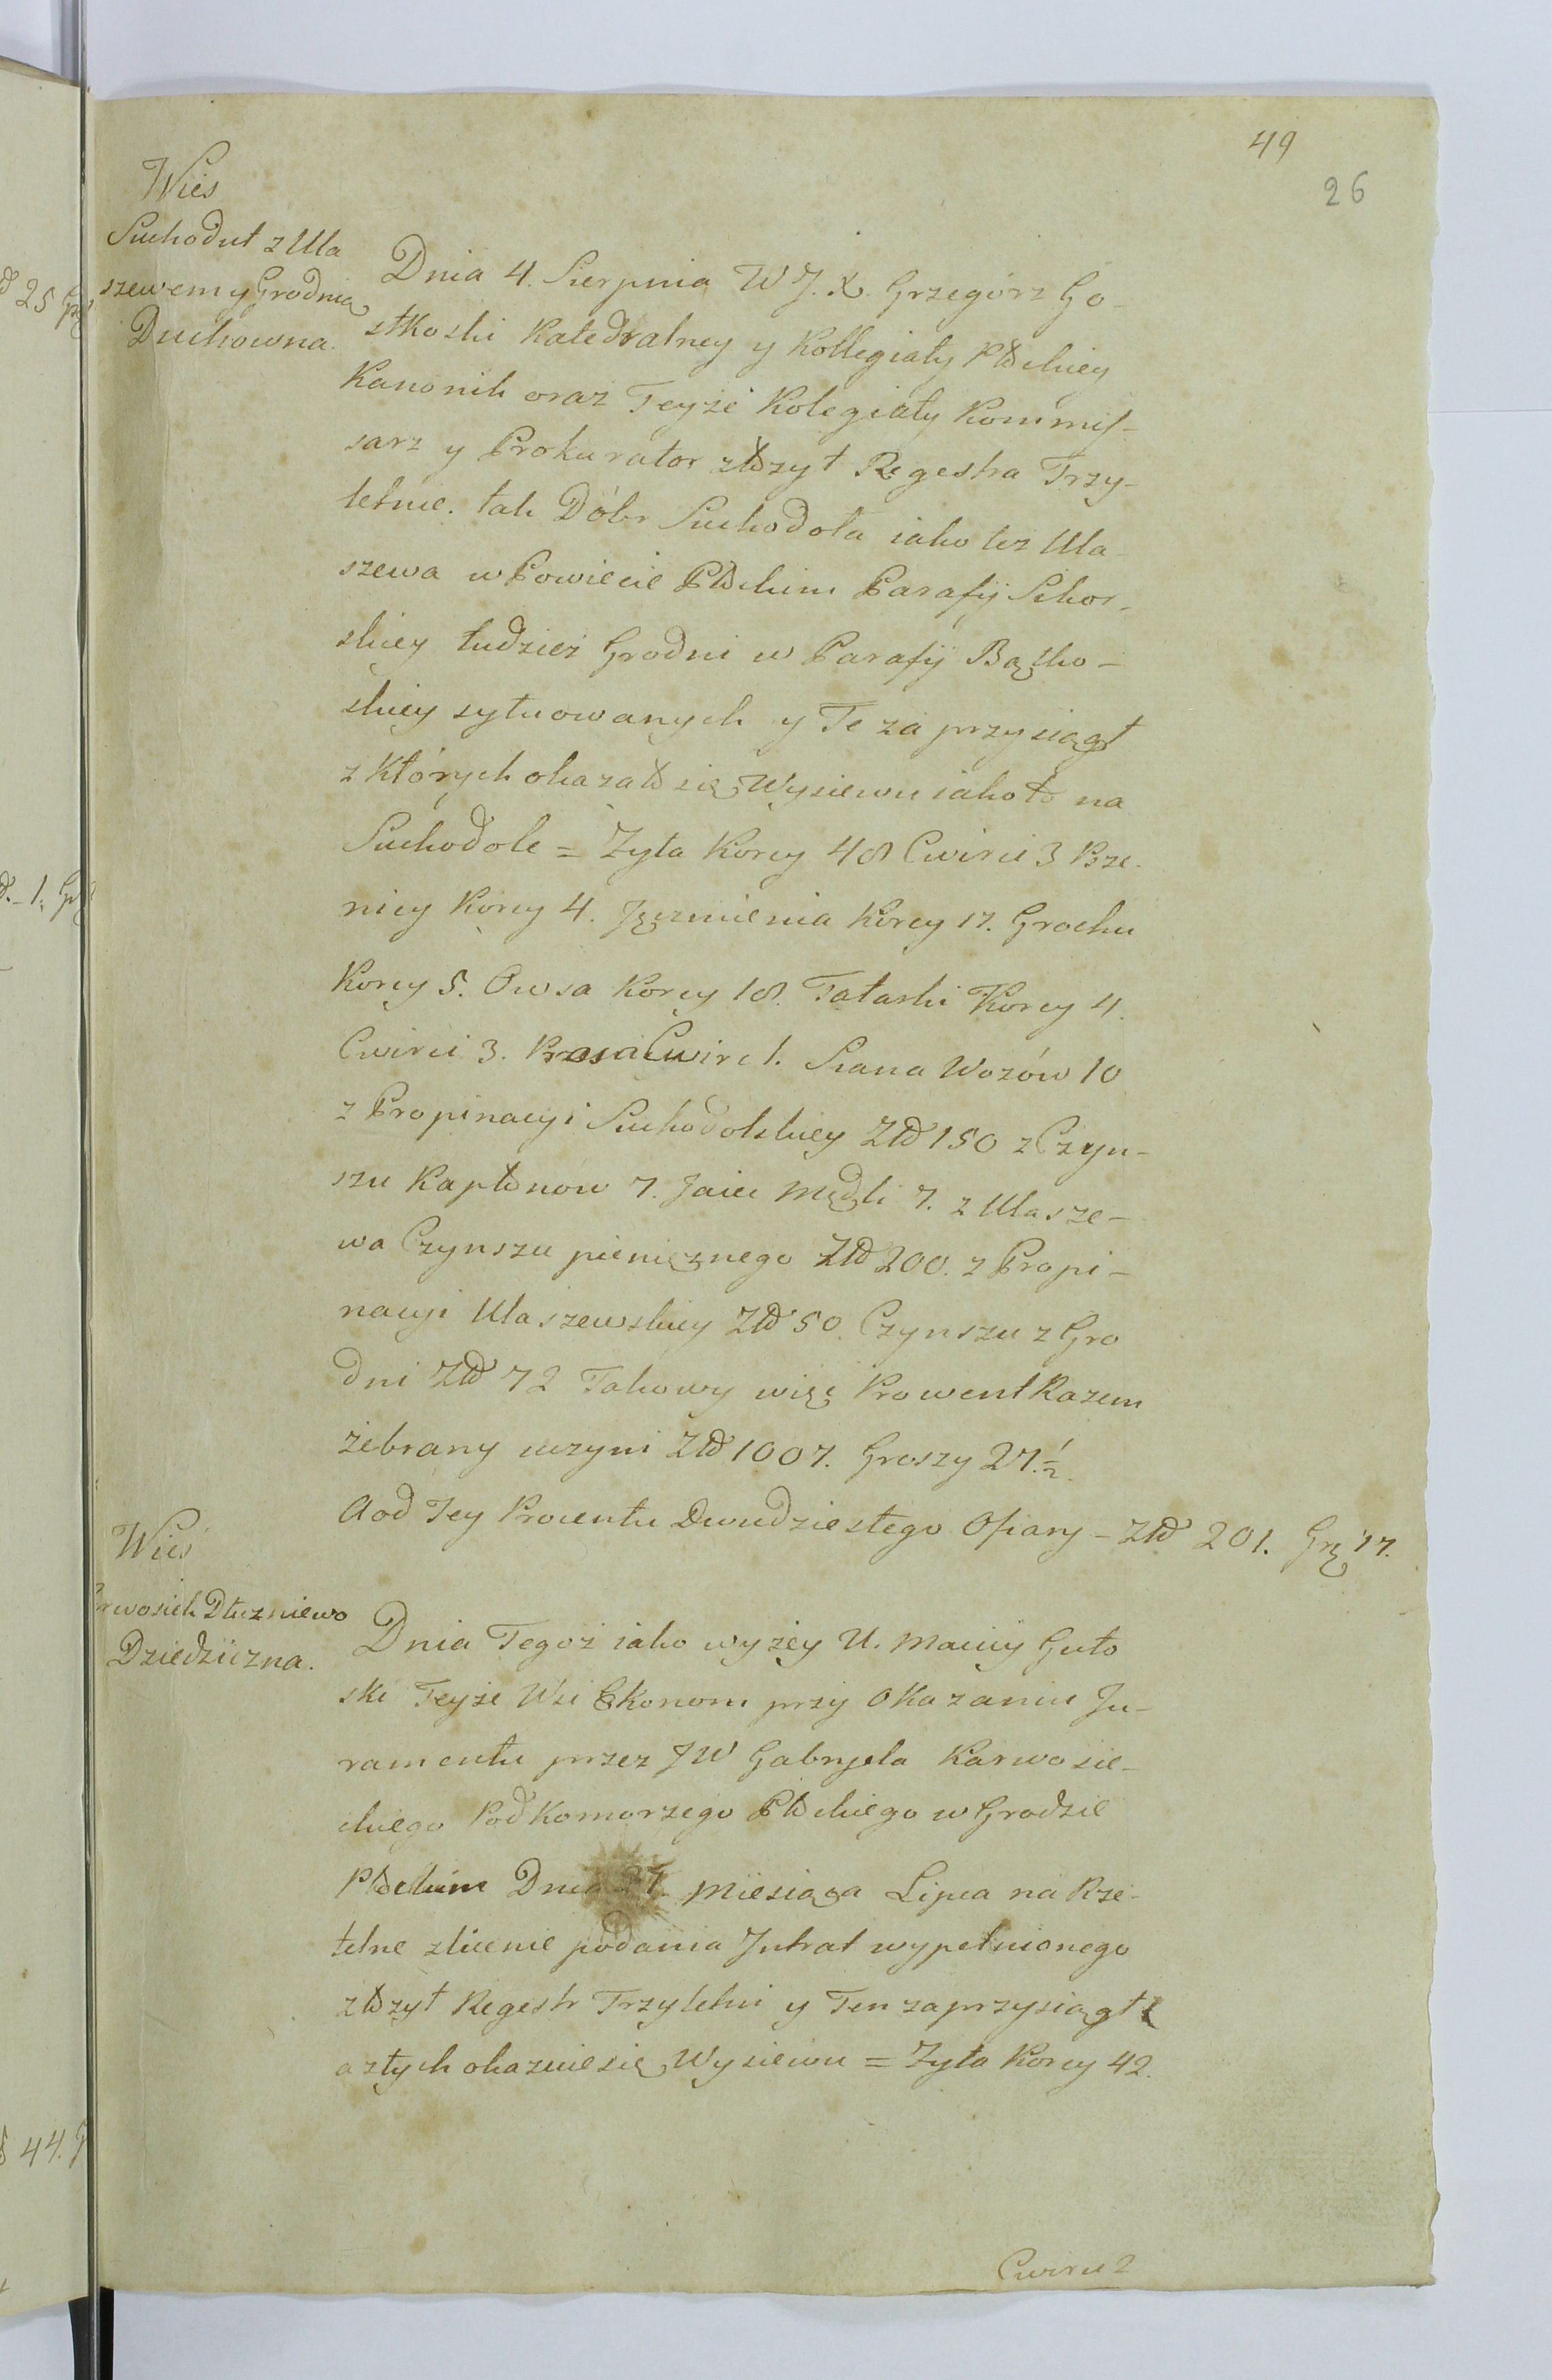 49
26
Wies
Suchoduł z Ula
szewem y Grodnią
Duchowna.
Dnia 4. Sierpnia W J. X. Grzegórz Go-
stkoski Katedralney y Kollegiaty Płockiey
Kanonik oraz Teyże Kolegiaty Kommis-
sarz y Prokurator złożył Regestra Trzy-
letnie. tak Dóbr Suchodoła iako tez Ula-
szewa w Powiecie Płockim Parafij Sikor-
skiey tudzież Grodni w Parafij Bądko-
skiey sytuowanych y Te zaprzysiągł
z których okazało się Wysiewu iako to na
Suchodole = Zyta Korcy 48 Cwierci 3 Psze-
nicy Korcy 4. Jęczmienia Korcy 17. Grochu
Korcy 5. Owsa Korcy 18. Tatarki Korcy 4.
Cwierci 3. Prosa Cwierc 1. Siana Wozów 10
z Propinacyi Suchodolskiey Zło 150 z Czyn-
szu Kapłonow 7. Jaiec Mędli 7. z Ulasze-
wa Czynszu pienięznego Zło 200. z Propi-
nacyi Ulaszewskiey Zło 50. Czynszu z Gro
dni Zło 72 Takowy więc Prowent Razem
żebrany uczyni Zło 1007. Groszy 27.½.
A od Tey Procentu Dwudziestego Ofiary - Zło 201. Grz 17.
Wieś
Karwosieki Dłuzniewo
Dziedziczna.
Dnia Tegoż iako wyżey U. Maciey Guto
ski Teyże Wsi Ekonom przy Okazaniu Ju-
ramentu przez JW Gabryela Karwosie-
ckiego Podkomorzego Płockiego w Grodzie
Płockim Dnia 27. Miesiąca Lipca na Rze-
telne zlicenie podania Intrat wypełnionego
złożył Regestr Trzyletni y Ten zaprzysiągł
a z tych okazuie się Wysiewu = Zyta Korcy 42.
Cwierci 2